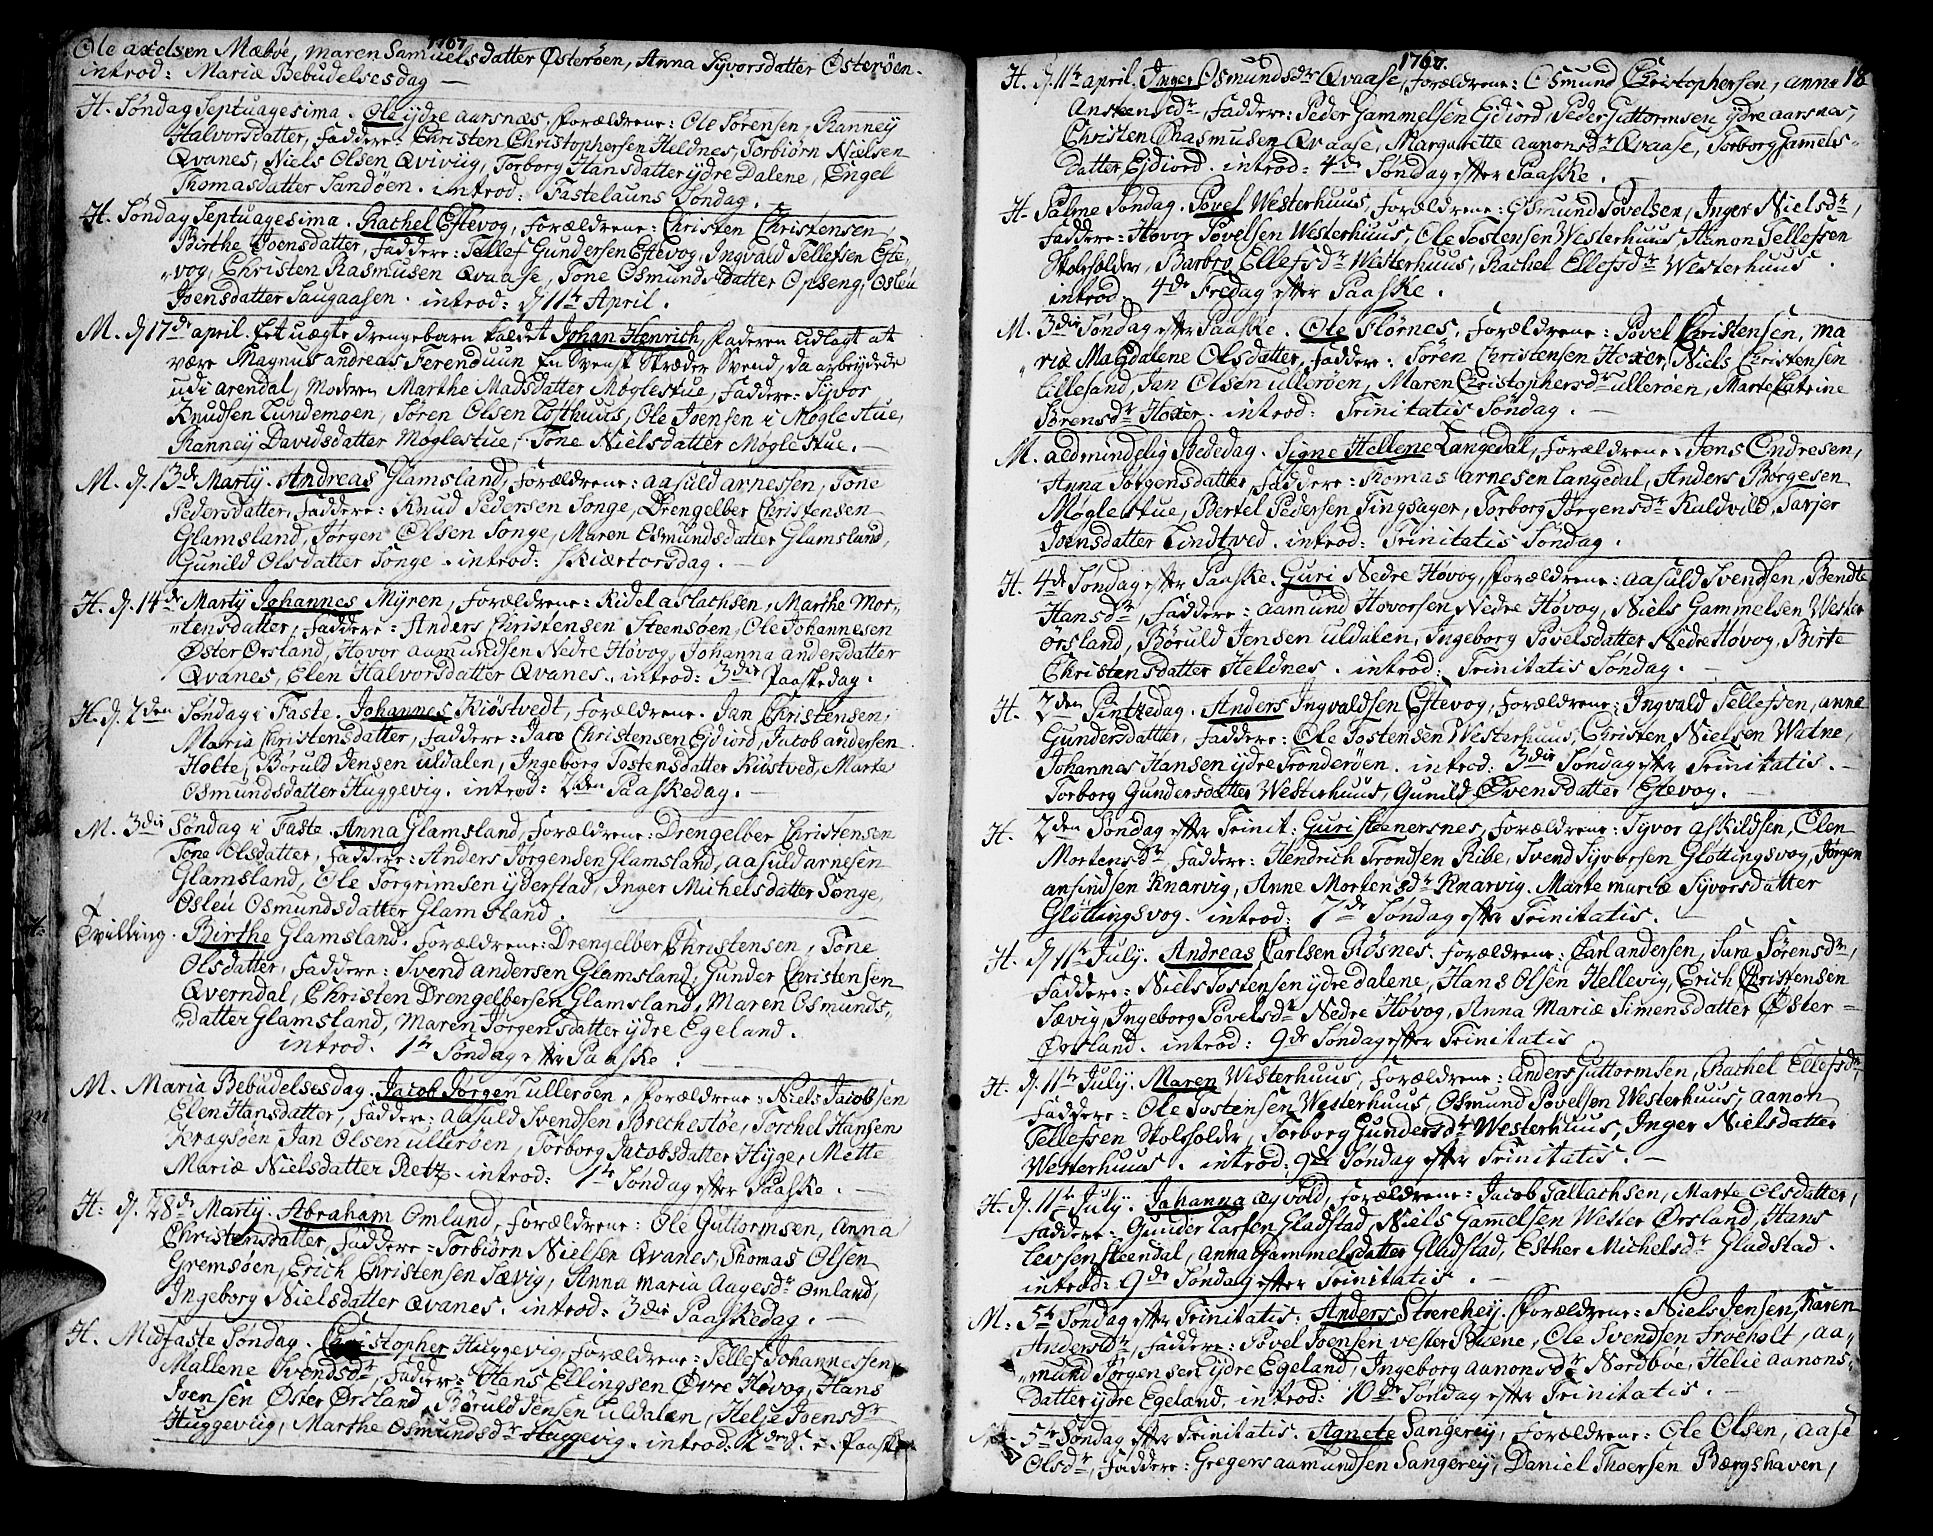 1767
Ole axelsen Mæbøe, maren Samuelsdatter Østerøen, Anna Syvorsdatter Østerøen.
introd: Mariæ Bebudelsesdag —
H. Søndag Septuagesima. Ole ydre aarsnæs, forældrene: Ole Sørensen, Ranney
Halvorsdatter, Faddere: Christen Christophersen Heldnes, Torbiørn Nielsen
Qvanes, Niels Olsen Qviviig, Torborg Hansdatter ydre Dalene, Engel
Thomasdatter Sandøen. introd: Fastelauns Søndag.
H. Søndag Septuagesima. Rachel Eftevog, Forældrene: Christen Christensen,
Birthe Joensdatter, Faddere: Tellef Gundersen Eftevog, Ingvald Tellefsen Efte,,
,,vog, Christen Rasmusen Qvaase, Tone Osmundsdatter Opseng, Osleu
Joensdatter Saugaasen. introd: d 11te April.
M. d 17de april. Et uægte drengebarn kaldet Johan Henrich, faderen udlagt at
være Magnus andreas Ferenduun En Svensk Skræder Svend, da arbeydede
udi arendal, moderen Marthe Madsdatter Møglestue, Faddere: Syvor
Knudsen Lundemoen, Søren Olsen Lofthuus, Ole Joensen i Møglestue,
Ranney Davidsdatter Møglestue, Tone Nielsdatter Møglestue. —
M. d. 13de Marty. Andreas Glamsland, forældrene: aasuld arnessen, Tone
Pedersdatter, Faddere: Knud Pedersen Songe, Drengelber Christensen
Glamsland, Jørgen Olsen Songe, Maren Osmundsdatter Glamsland,
Gunild Olsdatter Songe. introd: Skiærtorsdag. —
H. d. 14de Marty Johannes Myren, Forældrene: Ridel aslachsen, Marthe Mor,,
,,tensdatter, Faddere: Anders Christensen Steensøen, Ole Johannesen
Øster Ørsland, Hovor aamundsen Nedre Høvog, Johanna andersdatter
Qvanes, Elen Halvorsdatter Qvanes. introd: 3die Paaskedag.
H. d. 2den Søndag i Faste. Johannes Kiøstvedt, Forældrene. Jan Christensen,
Maria Christensdatter, Faddere: Jaco Christensen Ejdiord, Jacob andersen
Holte, Børuld Jensen uldalen, Ingeborg Tostensdatter Kiøstved, Marta
Osmundsdatter Huggevig. introd: 2den Paaskedag. —
M. 3die Søndag i Faste. Anna Glamsland, Forældrene: Drengelber Christensen
Tone Olsdatter, Faddere: Anders Jørgensen Glamsland, aasuld arnesen
Glamsland, Ole Torgrimsen yderstad, Inger Michelsdatter Songe,
Osleu Osmundsdatter Glamsland.
Tvilling. Birthe Glamsland. Forældrene: Drengelber Christensen, Tone
Olsdatter, Faddere: Svend andersen Glamsland, Gunder Christensen
Qverndal, Christen Drengelbersen Glamsland, Maren Osmunds,,
,,datter Glamsland, Maren Jørgensdatter ydre Egeland.
introd. 1te Søndag efter Paaske.
M. Maria Bebudelsesdag. Jacob Jørgen ullerøen, forældrene: Niels Jacobsen
Elen Hansdatter, Faddere: aasuld Svendsen Brechestøe, Torchel Hansen
Kragsøen Jan Olsen ullerøen, Torborg Jacobsdatter Hyger, Mette
Mariæ Nielsdatter Retz. introd: 1te Søndag efter Paaske.
H. d. 28de Marty. Abraham Omlund, Forældrene: Ole Guttormsen, Anna
Christensdatter, Faddere: Torbiørn Nielsen Qvanes, Thomas Olsen
Gremsøen, Erich Christensen Sævig, Anna maria Aagesdr Omland,
Ingeborg Nielsdatter Qvanes. introd: 3die Paaskedag. —
H. Midfaste Søndag. Christopher Huggevig, Forældrene: Tellef Johannessen
Mallene Svendsdr, Faddere: Hans Ellingsen Øvre Høvog, Hans
Joensen Øster Ørsland, Børuld Jensen uldalen, Helje Joensdr
Huggeviig, Marthe Osmundsdr Huggevig. introd. 2den S. e. Paaske
1767. 18
H. d. 11te april. Inger Osmundsdr Qvaase, forældrene: Osmund Christophersen, anna
Anstensdr, Faddere: Peder Gammelsen Ejdiord, Peder Guttormsen ydre aarsnes,
Christen Rasmusen Qvaase, Margarette aanonsdr Qvaase, Torborg Gamels-
datter Ejdiord. introd: 4de Søndag efter Paaske.
H. Palme Søndag. Povel Westerhuus, Forældrene: Osmund Povelsen, Inger Nielsdr,
Faddere: Hovor Povelsen Westerhuus, Ole Tostensen Westerhuus, Aanon Tellefsen
Skolholder, Barbro Ellefsdr Westerhuus, Rachel Ellefsdr Westerhuus.
introd. 4de Fredag efter Paaske.
M. 3die Søndag efter Paaske. Ole Slørnes, Forældrene: Povel Christensen, ma
,,riæ Magdalene Olsdatter, Faddere: Søren Christensen Hoxer, Niels Christensen
Lillesand, Jan Olsen ullerøen, Maren Christophersdr ullerøen, Marte Catrine
Sørensdr Hoxer. introd: Trinitatis Søndag. —
M. aldmindelig Bededag. Signe Hellene Langedal, Forældrene: Jens Endresen,
Anna Jørgensdatter, Faddere: Thomas arnesen Langedal, Anders Børgesen
Møglestue, Bertel Pedersen Tingsager, Torborg Jørgensdr Kuldvild, Tarjer
Joensdatter Lindtved. introd: Trinitatis Søndag.
H. 4de Søndag efter Paaske. Guri Nedre Høvog, forældrene: aasuld Svendsen, Bendte
Hansdr, Faddere: aamund Hovorsen Nedre Høvog, Niels Gammelsen Wester
Ørsland, Børuld Jensen uldalen, Ingeborg Povelsdatter Nedre Høvog, Birte
Christensdatter Heldnes. introd: Trinitatis Søndag. —
H. 2den Pintzedag. Anders Ingvaldsen Eftevog, Forældrene: Ingvald Tellefsen, anne
Gundersdatter, Faddere: Ole Tostensen Westerhuus, Christen Nielsen Watne,
Johannes Hansen ydre Tronderøen. introd: 3die Søndag efter Trinitatis. —
Torborg Gundersdatter Westerhuus, Gunild Øvensdatter Eftevog.
H. 2den Søndag efter Trinit: Guri Steenersnes, Forældrene: Syvor askildsen, Elen
Mortensdr, Faddere: Hendrich Trondsen Ribe, Svend Syversen Gløttingsvog, Jørgen
anfindsen Knarvig, Anne Mortensdr Knarvig, Marte mariæ Syvorsdatter
Gløttingsvog. introd: 7de Søndag efter Trinitatis. —
H. d 11te July. Andreas Carlsen Røsnes. Forældrene: Carl andersen, Sara Sørensdr,
Faddere: Niels Tostensen ydre dalene, Hans Olsen Hellevig, Erich Christensen
Sævig, Ingeborg Povelsdr Nedre Høvog, Anna Mariæ Simensdatter Øster-
Ørsland. introd: 9de Søndag efter Trinitatis
H. d. 11te July. Maren Westerhuus, Forældrene: anders Guttormsen, Rachel Ellefsdr,
Faddere: Ole Tostensen Westerhuus, Osmund Povelsen Westerhuus, aanon
Tellefsen Skolholder, Torborg Gundersdr Westerhuus, Inger Nielsdatter
Westerhuus. introd: 9de Søndag efter Trinitatis. —
H. d. 11te July. Johanna Øyvold, Forældrene: Jacob Tallachsen, Marte Olsdatter,
Faddere: Gunder Larsen Gladstad, Niels Gammelsen Wester Ørsland, Hans
Levsen Steendal, Anna Gammelsdatter Gladstad, Esther Michelsdr Gladstad.
introd: 9de Søndag efter Trinitatis. —
M: 5te Søndag efter Trinitatis: Anders Strerehey. forældrene: Niels Jensen, Karen
Andersdr, Faddere: Povel Joensen vester Buene, Ole Svendsen Froeholt, aa,,
,,mund Jørgensen ydre Egeland, Ingeborg aanonsdr Nordbøe, Helie aanons-
datter ydre Egeland. introd: 10de Søndag efter Trinitatis. —
5te Søndag efter Trinitatis. Agnete Sangereij, Forældrene: Ole Olsen, aase
Olsdr, Faddere: Gregers aamundsen Sangereij, Daniel Thoersen Bergshaven,